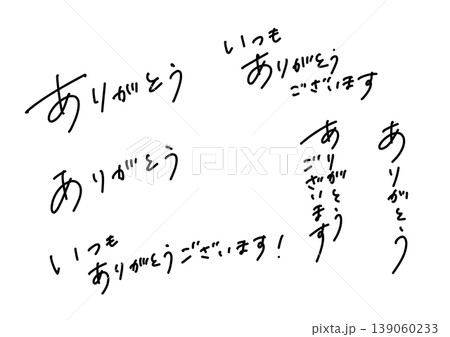 ありがとう
いつも
ありがとう
ございます
ありがとう
いつも
ありがとうございます！
ありがとう
ございます
ありがとう
PIXTA
pixta.jp - 139060233